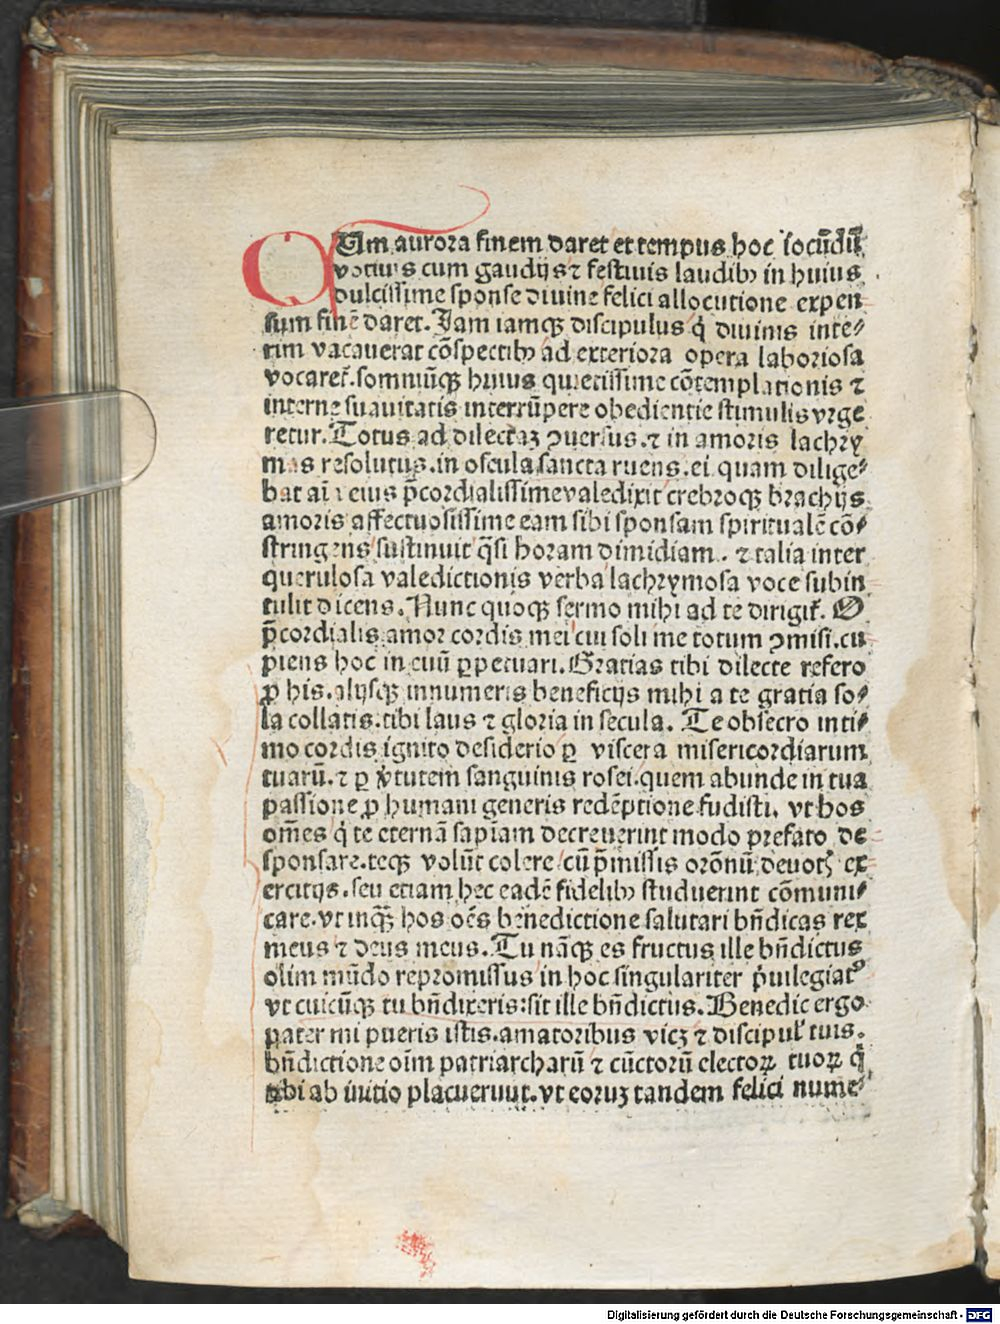 QUm aurora finem daret et tempus hoc iocūdū
votiuis cum gaudijs ⁊ festiuis laudibꝫ in huius
dulcissime sponse diuine felici allocutione expen
sum finē daret. Jam iamqꝫ discipulus q̇ diuinis inte⸗
rim vacauerat cōspectibꝫ ad exteriora opera laboriosa
vocaret̄. somniūqꝫ huius quietissime cōtemplationis ⁊
interne suauitatis interrūpere obedientie stimulis vrge
retur. Totus ad dilectaꝫ ꝯuersus. ⁊ in amoris lachry
mas resolutus. in oscula sancta ruens. ei quam dilige⸗
bat eius p̄cordialissime valedixit crebroqꝫ brachijs
amoris affectuosissime eam sibi sponsam spiritualē cō⸗
stringens sustinuit q̄si horam dimidiam. ⁊ talia inter
querulosa valedictionis verba lachrymosa voce subin
tulit dicens. Nunc quoqꝫ sermo mihi ad te dirigit̄. O
p̄cordialis amor cordis mei cui soli me totum ꝯmisi. cu
piens hoc in euū ꝑpetuari. Gratias tibi dilecte refero
ꝓ his. alijsqꝫ innumeris beneficijs mihi a te gratia so⸗
la collatis. tibi laus ⁊ gloria in secula. Te obsecro inti⸗
mo cordis ignito desiderio ꝑ viscera misericordiarum
tuarū. ⁊ ꝑ v̇tutem sanguinis rosei. quem abunde in tua
passione ꝓ humani generis redēptione fudisti. vt hos
om̄es q̇ te eternā sapiam decreuerint modo prefato de
sponsare. teqꝫ volūt colere cū p̄missis orōnū deuotꝭ ex
ercitijs. seu etiam hec eadē fidelibꝫ studuerint cōmuni⸗
care. vt inqꝫ̄ hos oēs benedictione salutari bn̄dicas rex
meus ⁊ deus meus. Tu nāqꝫ es fructus ille bn̄dictus
olim mūdo repromissus in hoc singulariter ṗuilegiatꝰ
vt cuicūqꝫ tu bn̄dixeris: sit ille bn̄dictus. Benedic ergo
pater mi pueris istis. amatoribus vicꝫ ⁊ discipul̕ tuis.
bn̄dictione oīm patriarcharū ⁊ cūctorū electoꝝ tuoꝝ q̇
tibi ab initio placuerunt. vt eoruꝫ tandem felici nume⸗
Digitalisierung gefördert durch die Deutsche Forschungsgemeinschaft - DFG